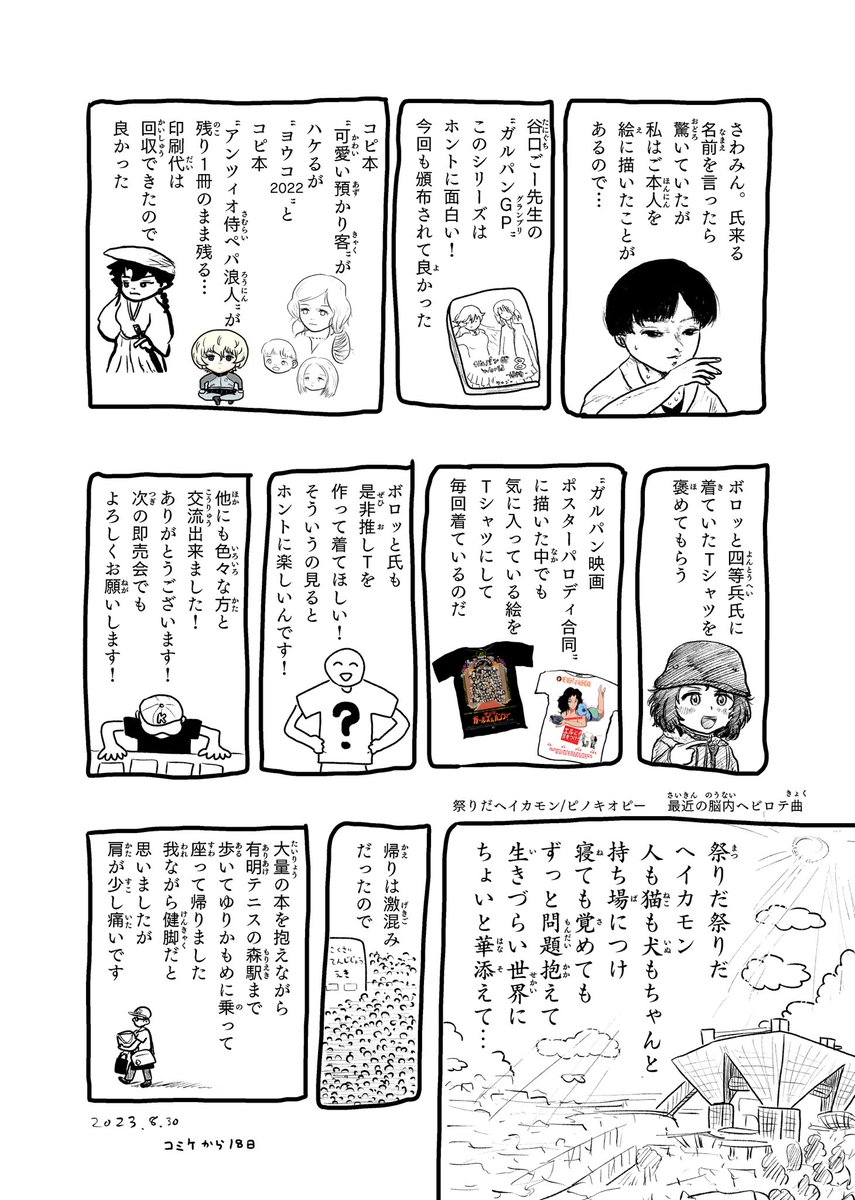 さわみん。氏来る
名前を言ったら
驚いていたが
私はご本人を
絵に描いたことが
あるので…
谷口ごー先生の
"ガルパンGP"
このシリーズは
ホントに面白い!
今回も頒布されて良かった
コピ本
"可愛い預かり客"が
ハケるが
"ヨウコ2022"と
コピ本
"アンツィオ侍ペパ浪人"が
残り1冊のまま残る…
印刷代は
回収できたので
良かった
ボロッと四等兵氏に
着ていたTシャツを
褒めてもらう
"ガルパン映画
ポスターパロディ合同"
に描いた中でも
気に入っている絵を
Tシャツにして
毎回着ているのだ
ボロッと氏も
是非推しTを
作って着てほしい!
そういうの見ると
ホントに楽しいんです!
?
他にも色々な方と
交流出来ました!
ありがとうございます!
次の即売会でも
よろしくお願いします!
K
祭りだヘイカモン/ピノキオピー 最近の脳内ヘビロテ曲
祭りだ祭りだ
ヘイカモン
人も猫も犬もちゃんと
持ち場につけ
寝ても覚めても
ずっと問題抱えて
生きづらい世界に
ちょいと華添えて…
帰りは激混み
だったので
こくさい
てんじじょう
えき
大量の本を抱えながら
有明テニスの森駅まで
歩いてゆりかもめに乗って
座って帰りました
我ながら健脚だと
思いましたが
肩が少し痛いです
2023.8.30
コミケから18日